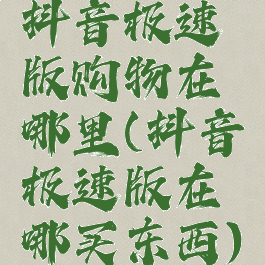 抖音极速
版购物在
哪里(抖音
极速版在
哪买东西)